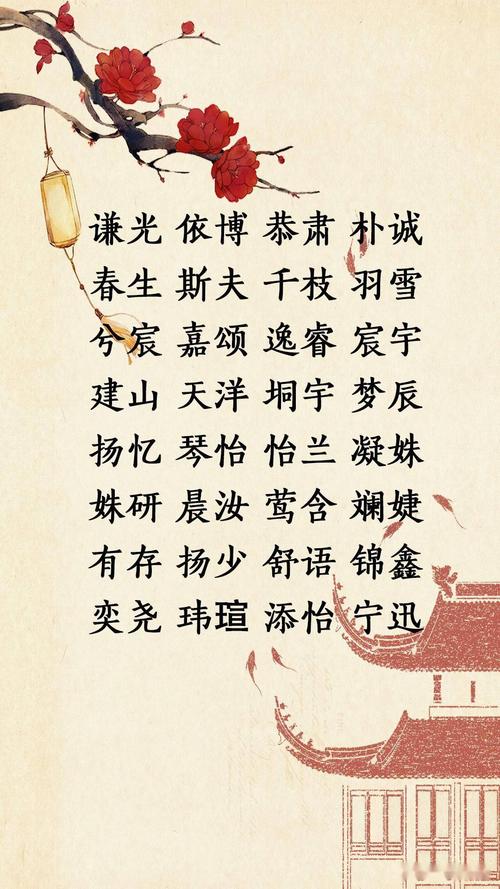 谦光 依博 恭肃 朴诚
春生 斯夫 千枝 羽雪
兮宸 嘉颂 逸睿 宸宇
建山 天洋 垌宇 梦辰
扬忆 琴怡 怡兰 凝姝
姝研 晨汝 莺含 斓婕
有存 扬少 舒语 锦鑫
奕尧 玮瑄 添怡 宁迅